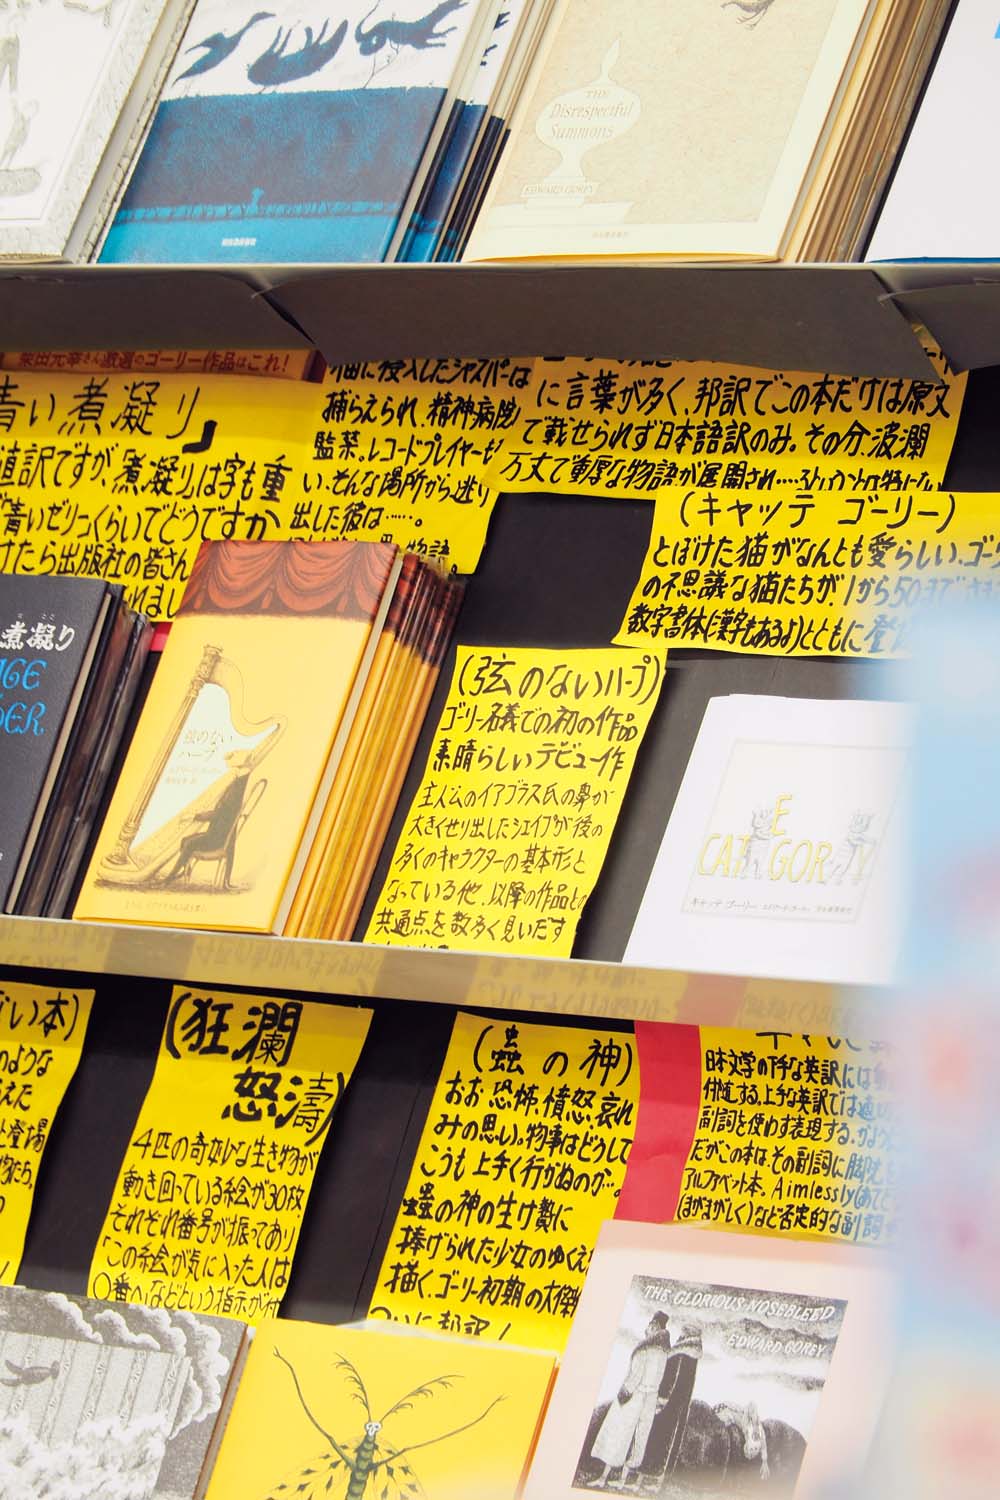 THE
Disrespectful
Summons
EDWARD GOREY
柴田元幸さん厳選のゴーリー作品はこれ!
青い煮凝り』
直訳ですが、「煮凝り」は字も重
「青いゼリーくらいでどうですか
けたら出版社の皆さん
侵入したジャスパーは
捕らえられ、精神病院
監禁。レコードプレイヤーも
い。そんな場所から逃
出した彼は……。
に言葉が多く、邦訳でこの本だけは原文
で載せられず日本語訳のみ。その分、波瀾
万丈で重厚な物語が展開され……
(キャッテ ゴーリー)
とぼけた猫がなんとも愛らしい、ゴー
の不思議な猫たちが、1から50まで
数字書体(漢字もあるよ)とともに登場
煮凝り
弦のない
ハープ
(弦のないハープ)
ゴーリー名義での初の作品
素晴らしいデビュー作
主人公のイアブラス氏の鼻が
大きくせり出したシェイプが後の
多くのキャラクターの基本形と
なっている他、以降の作品との
共通点を数多く見いだす
CAT E GORY
キャッテ ゴーリー エドワード・ゴーリー
ない本)
のような
登場
(狂瀾
怒濤)
4匹の奇妙な生き物が
動き回っている絵が30枚
それぞれ番号が振ってあり
「この絵が気に入った人は
○番へ」などという指示が付
(蟲の神)
おお 恐怖、憤怒、哀れ
みの思い。物事はどうして
こうも上手く行かぬのか…。
蟲の神の生け贄に
捧げられた少女のゆくえ
描く、ゴーリー初期の大傑
ついに邦訳!
日本文学の下手な英訳には
付随する。上手な英訳では適切
副詞を使わず表現する。
だがこの本は、その副詞に脚光を
アルファベット本。Aimlessly(あてど
(まがまがしく)など否定的な副詞
THE GLORIOUS NOSEBLEED
EDWARD GOREY